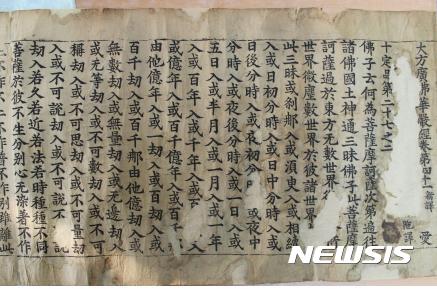 大方廣佛華嚴經卷第四十一 新譯 愛
十定品第二十七之二
佛子云何為菩薩摩訶薩次第遍往
諸佛國土神通三昧佛子此菩薩摩
訶薩過於東方無數世界
世界微塵數世界於彼諸世界
此三昧或刹那入或須臾入或相續
入或日初分時入或日中分時入或
日後分時入或夜初分 或夜中
分時入或夜後分時入或一日入或
五日入或半月入或一月入或一年
入或百年入或千年入
或億年入或百千億年入或百千
由他億年入或一劫入或百劫入或
百千劫入或百千那由他億劫入或
無數劫入或無量劫入或無邊劫入
或無等劫入或不可數劫入或不可
稱劫入或不可思劫入或不可量劫
入或不可說劫入或不可說不
劫入若久若近若法若時種種不同
菩薩於彼不生分別心無染著不作
二不作不二不作普不作別雖離此
NEWSIS